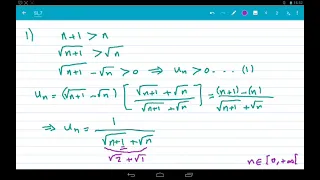 1) n+1 > n
√n+1 > √n
√n+1 - √n > 0 ⇒ un > 0 ... (1)
un = (√n+1 - √n) [ √n+1 + √n / √n+1 + √n ] = (n+1) - (n) / √n+1 + √n
⇒ un = 1 / √n+1 + √n
√2 + √1
n ∈ [0, +∞[